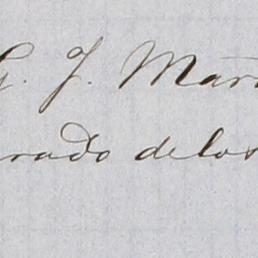 G. J. Mar
rado de los